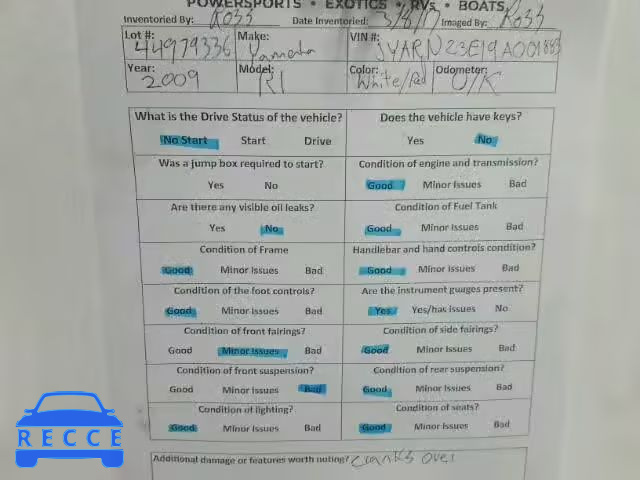 POWERSPORTS • EXOTICS • RVs • BOATS
Inventoried By: Ross Date Inventoried: 3/8/17 Imaged By: Ross
Lot #: Make: VIN #:
44979336 Yamaha JYARN23E19A001883
Year: Model: Color: Odometer:
2009 R1 White/Red O/K
What is the Drive Status of the vehicle? Does the vehicle have keys?
No Start Start Drive Yes No
Was a jump box required to start? Condition of engine and transmission?
Yes No Good Minor Issues Bad
Are there any visible oil leaks? Condition of Fuel Tank
Yes No Good Minor Issues Bad
Condition of Frame Handlebar and hand controls condition?
Good Minor Issues Bad Good Minor Issues Bad
Condition of the foot controls? Are the instrument guages present?
Good Minor Issues Bad Yes Yes/has issues No
Condition of front fairings? Condition of side fairings?
Good Minor Issues Bad Good Minor Issues Bad
Condition of front suspension? Condition of rear suspension?
Good Minor Issues Bad Good Minor Issues Bad
Condition of lighting? Condition of seats?
Good Minor Issues Bad Good Minor Issues Bad
Additional damage or features worth noting? Cranks over
RECCE